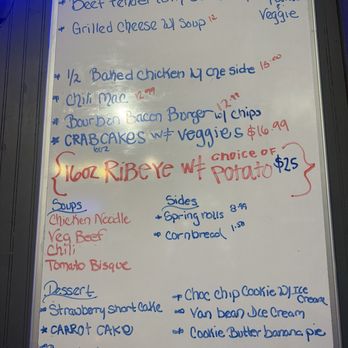 Beef Tender
Veggie
Grilled Cheese w/ Soup 12
1/2 Baked Chicken w/ one side 15.00
Chili Mac 12.99
Bourbon Bacon Burger w/ chips 12.99
CRABCAKES w/ veggies $16.99
6oz
16oz RibEYE w/ choice OF Potato $25
Soups
Chicken Noodle
Veg Beef
Chili
Tomato Bisque
Sides
Spring rolls 8.99
Cornbread 1.50
Dessert
Strawberry short cake
CARROT CAKE
Choc chip Cookie w/ Ice Cream
Van bean Ice Cream
Cookie Butter banana pie